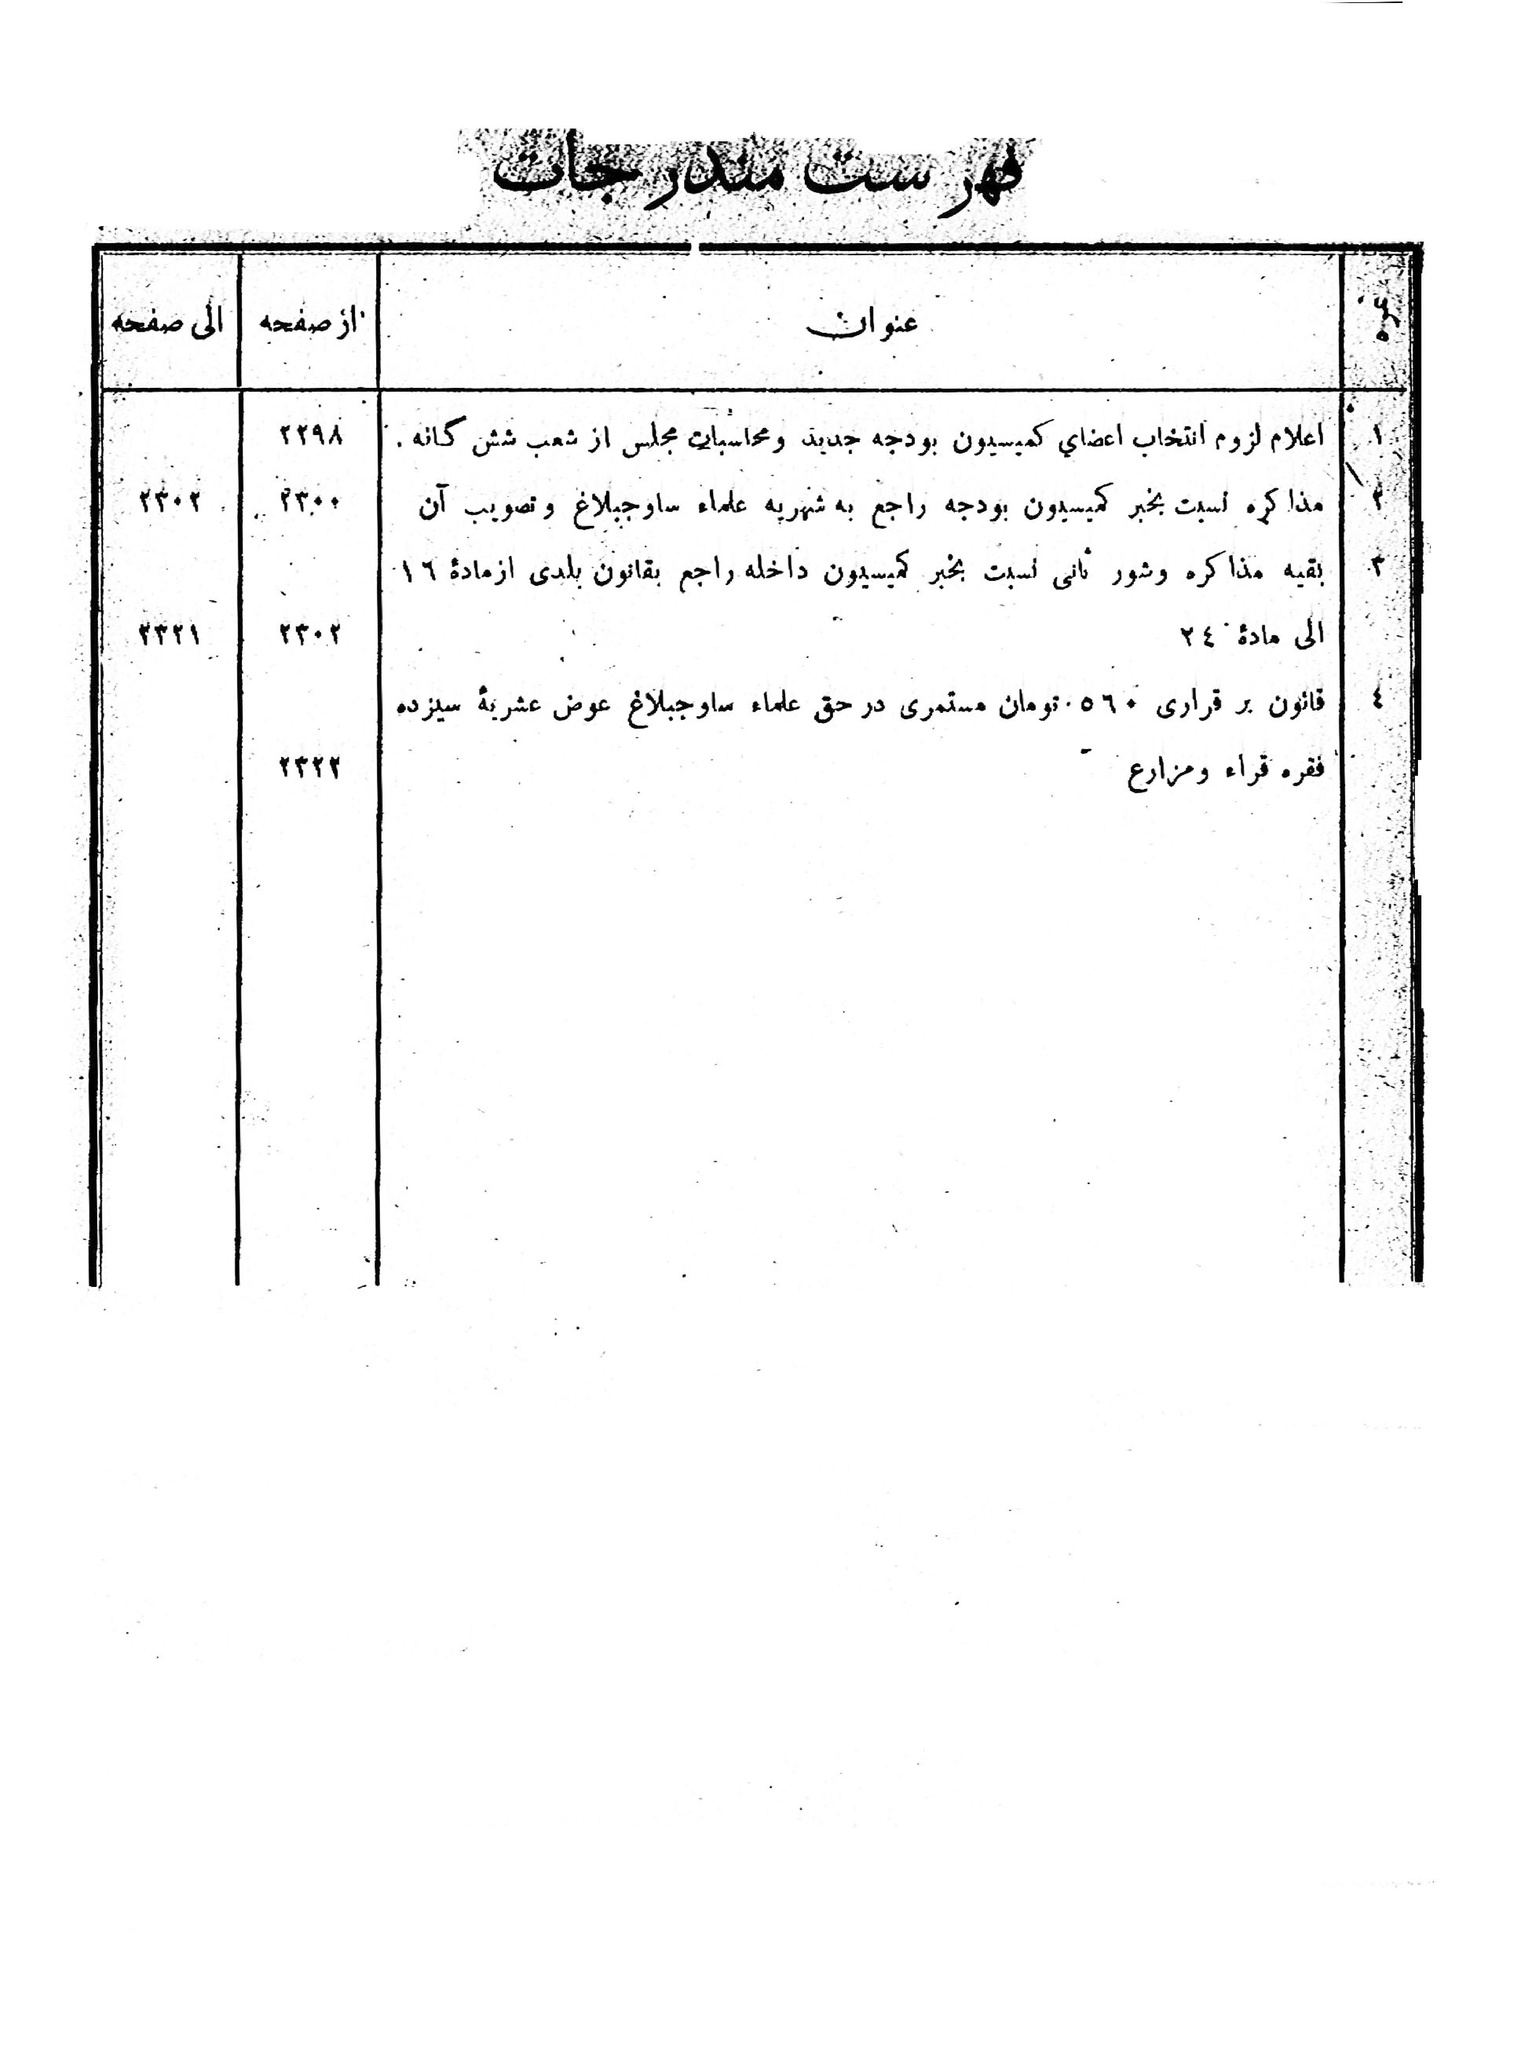 فهرست مندرجات
نمره عنوان از صفحه الی صفحه
١ اعلام لزوم انتخاب اعضای کمیسیون بودجه جدید ومحاسبات مجلس از شعب شش گانه . ٢٢٩٨
٢ مذاکره نسبت بخبر کمیسیون بودجه راجع به شهریه علماء ساوجبلاغ وتصویب آن ٢٣٠٠ ٢٣٠٢
٣ بقیه مذاکره وشور ثانی نسبت بخبر کمیسیون داخله راجع بقانون بلدی ازمادۀ ١٦
الی مادۀ ٢٤ ٢٣٠٢ ٢٣٢١
٤ قانون بر قراری ٥٦٠ تومان مستمری در حق علماء ساوجبلاغ عوض عشریۀ سیزده
فقره قراء ومزارع ٢٣٢٢